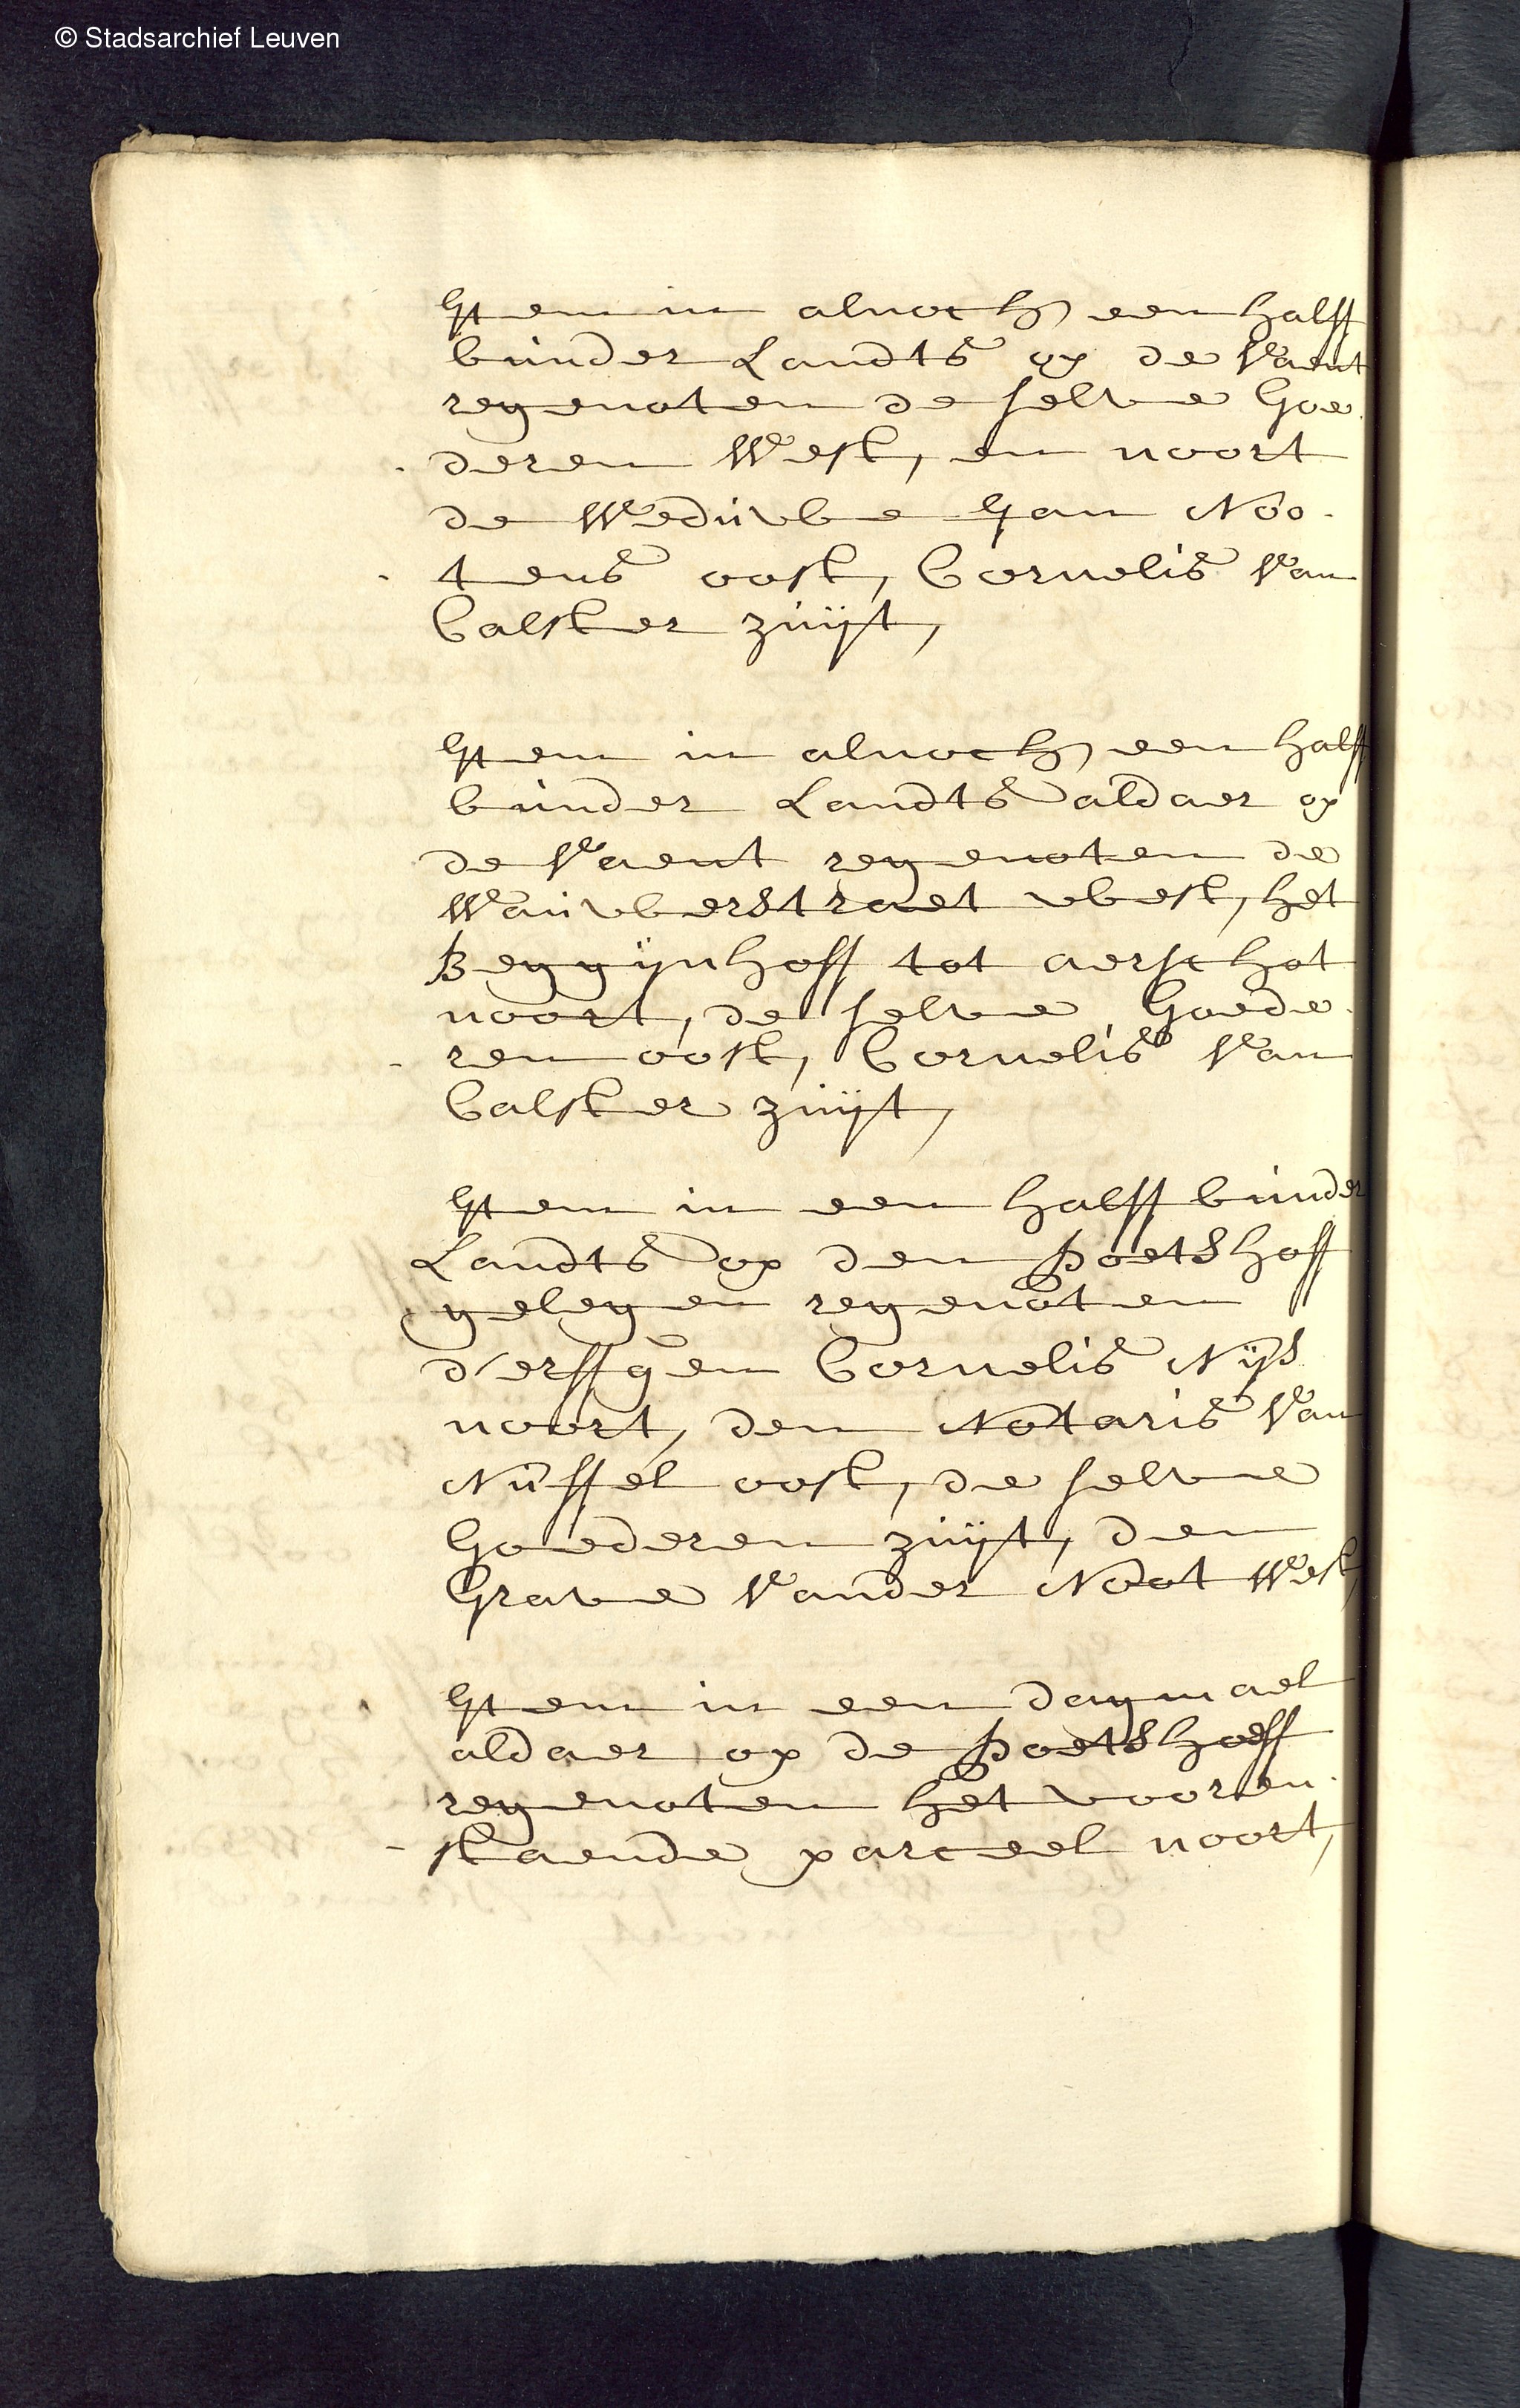 © Stadsarchief Leuven
Item in alnoch een halff
bunder Landts op de Vaent
regenoten de selve Goe
deren West, en noort
de Weduwe Jan Noo
tens oost, Cornelis Van
Calster zuijt,
Item in alnoch een halff
bunder Landts aldaer op
de Vaent regenoten de
Wauwerstraet west, het
Beggijnhoff tot aerschot
noort, de selve Goede
ren oost, Cornelis Van
Calster zuijt,
Item in een halff bunder
Landts op den poetshoff
gelegen regenoten
d'erffgen Cornelis Nijs
noort, den Notaris Van
Nuffel oost, de selve
Goederen zuijt, den
Grave Vander Noot West,
Item in een dagmael
aldaer op de poetshoeff
regenoten het vooren
staende parceel noort,